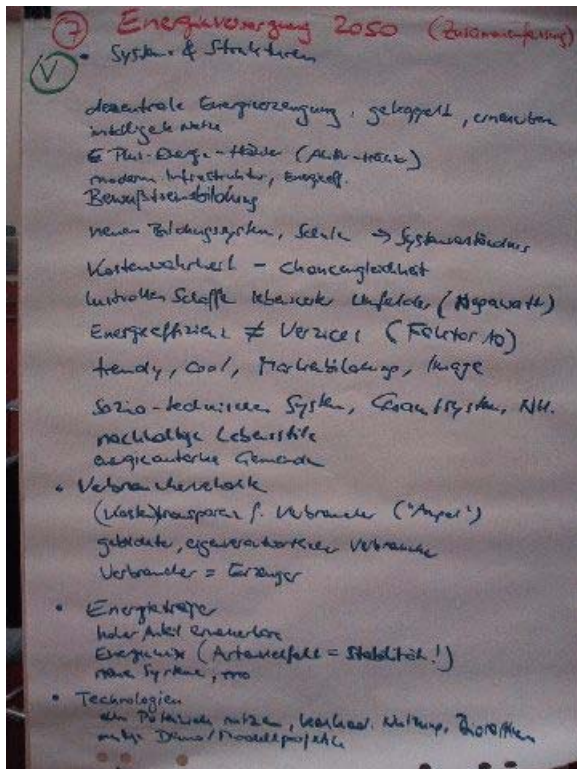 7 Energieversorgung 2050 (Zusammenfassung)
V • Systeme & Strukturen
dezentrale Energieerzeugung, gekoppelt, erneuerbar
intelligente Netze
Plus-Energie-Häuser (Aktiv-Häuser)
moderne Infrastruktur, Energieeff.
Bewußtseinsbildung
neues Bildungssystem, Schule → Systemverständnis
Kostenwahrheit – Chancengleichheit
lebenswerter Umfelder (Negawatt)
Energieeffizienz ≠ Verzicht (Faktor 10)
trendy, cool, Markenbildung, Image
Sozio-technisches System, Gesamtsystem, NH.
nachhaltige Lebensstile
energieautarke Gemeinde
• Verbraucherverhalten
(Kosten)transparenz f. Verbraucher ("Ampel")
gebildete, eigenverantwortliche Verbraucher
Verbraucher = Erzeuger
• Energieträger
hoher Anteil erneuerbare
Energiemix (Artenvielfalt = Stabilität!)
neue Systeme,
• Technologien
Potenziale nutzen, Nutzung,
Demo/Modellprojekte